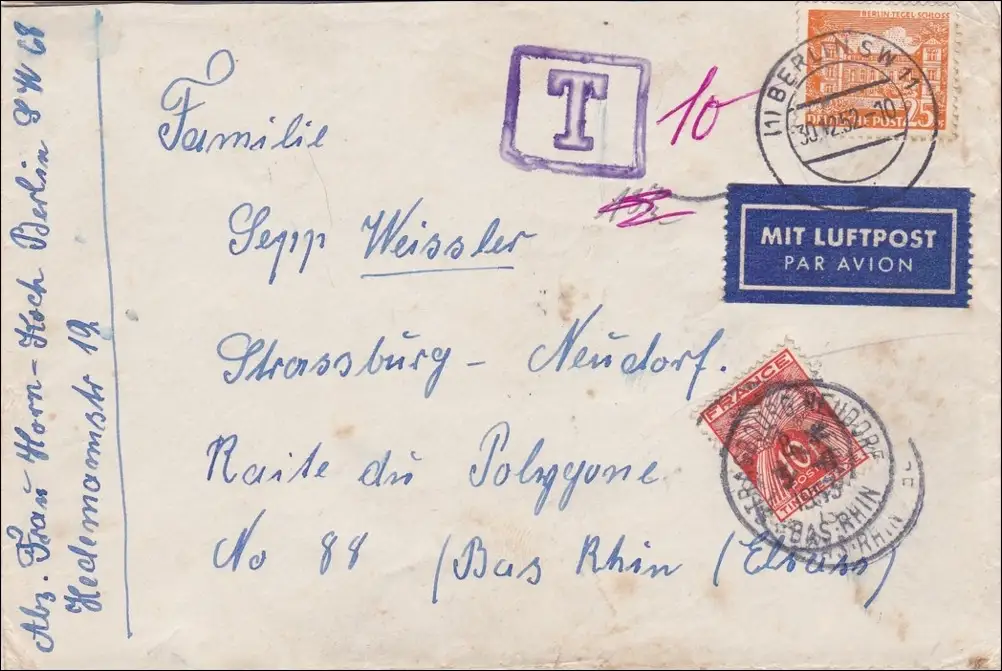 Abz. Frau Horn-Koch Berlin SW 68
Hedemannstr 19.
BERLIN-TEGEL-SCHLOSS
DEUTSCHE POST 25
(1) BERLIN SW 11
30.12.52.-10
T
10
MIT LUFTPOST
PAR AVION
Familie
Sepp Weissler
Strassburg - Neudorf.
Raite du Polygone
No 88 (Bas Rhin (Elsass)
FRANCE
10
NEUDORF
BAS-RHIN